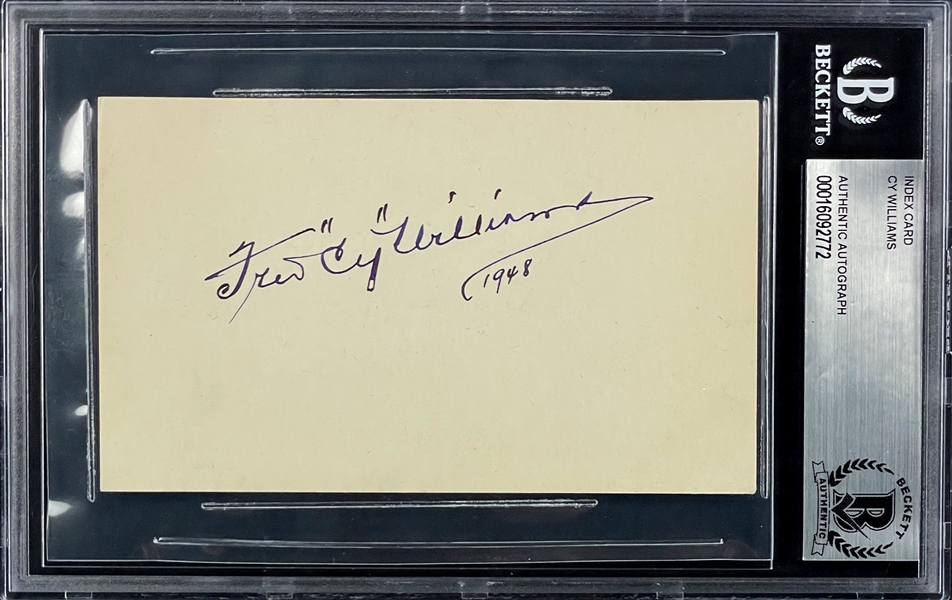 Fred "Cy" Williams
1948
BECKETT®
B
INDEX CARD
CY WILLIAMS
AUTHENTIC AUTOGRAPH
00016092772
BECKETT
AUTHENTIC